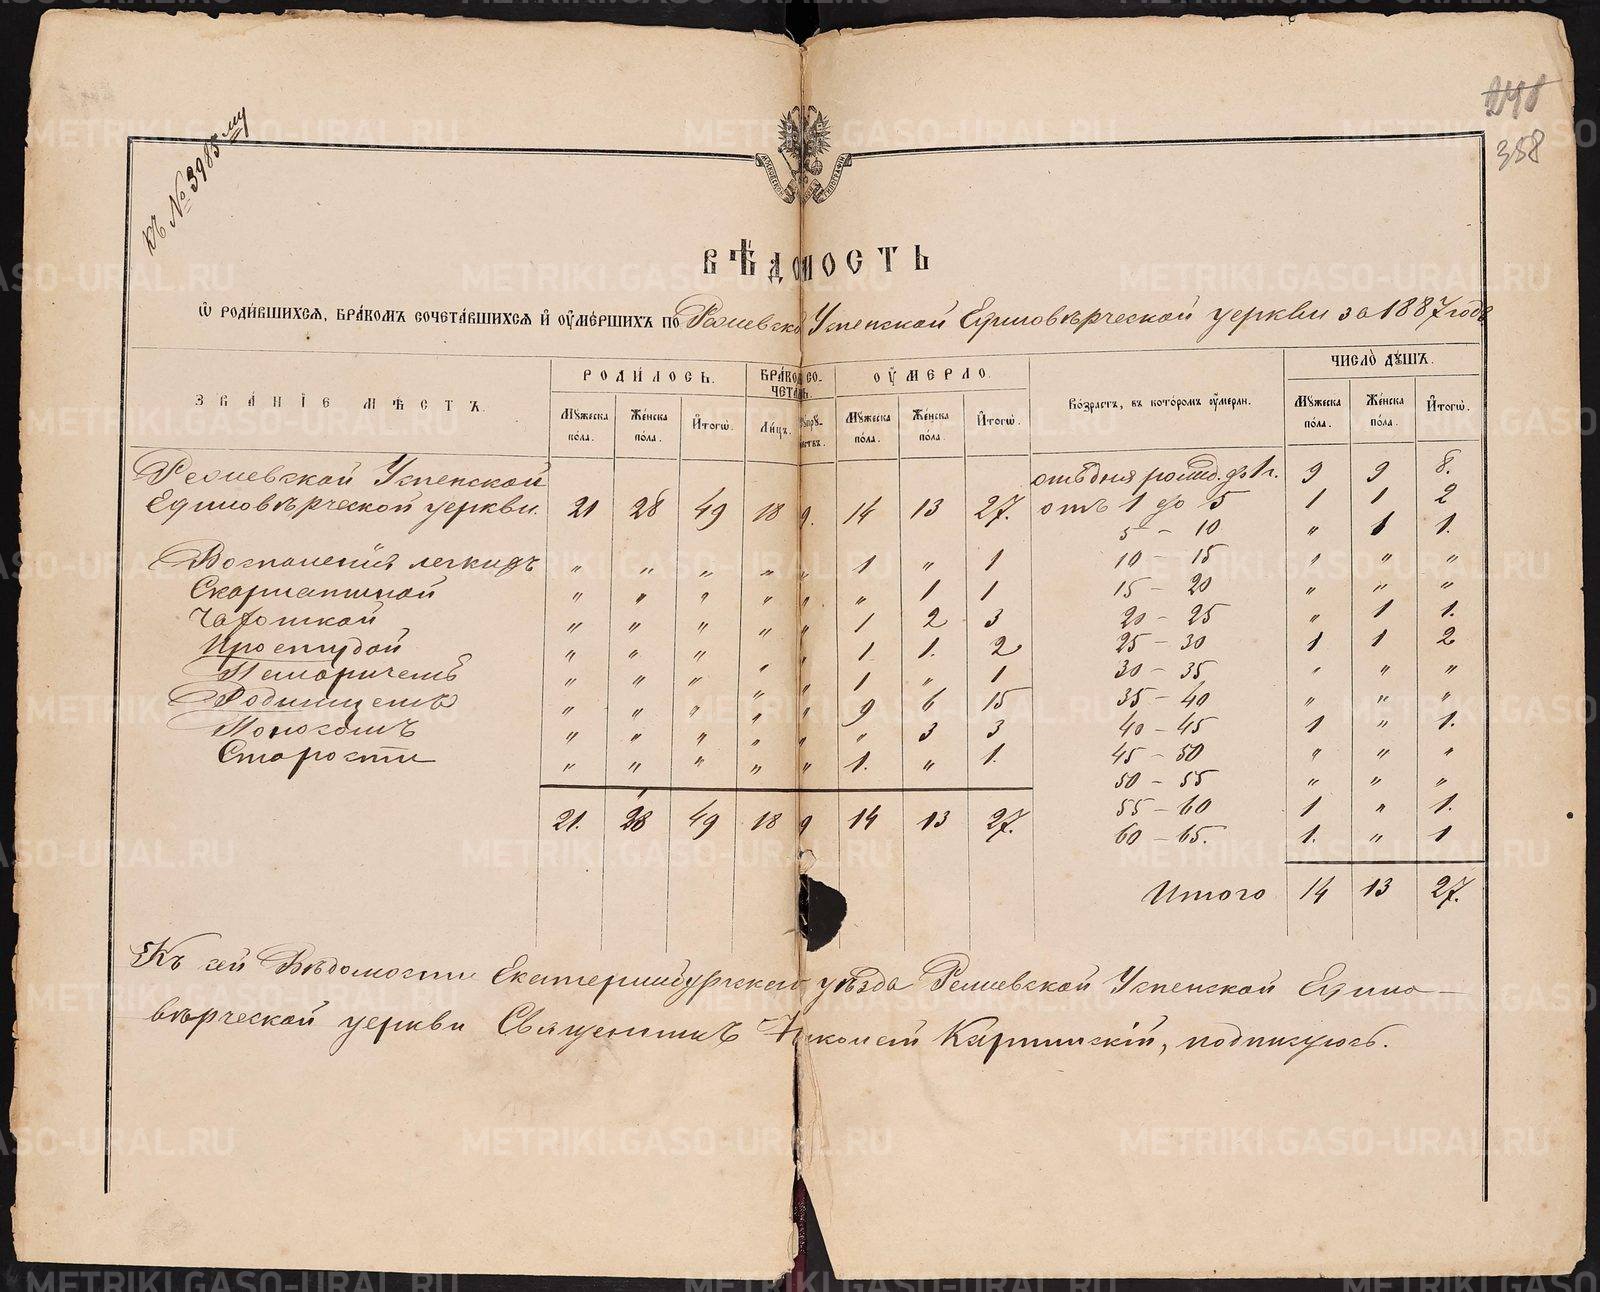 248
358
къ № 3985му
ВѢДОМОСТЬ
Ѡ РОДИВШИХСЯ, БРАКОМЪ СОЧЕТАВШИХСЯ И ОУМЕРШИХЪ ПО Режевской Успенской Единовѣрческой церкви за 1887 годъ
ЗВАНІЕ МѢСТЪ. РОДИЛОСЬ. БРАКОМ СОЧЕТАЛ. ОУМЕРЛО. Возрастъ, въ которомъ оумерли. ЧИСЛО ДУШЪ.
Мужеска пола. Женска пола. Итогѡ. Лицъ. Супружествъ. Мужеска пола. Женска пола. Итогѡ. Мужеска пола. Женска пола. Итогѡ.
Режевской Успенской отъ дня рожд. до 1 г. 9 9 8.
Единовѣрческой церкви. 21 28 49 18 9. 14 13 27. отъ 1 до 5 1 1 2
5 - 10 " 1 1.
Воспаленіе легкихъ " " " " " 1 " 1 10 - 15 " " "
Скарлатиной " " " " " " 1 1 15 - 20 " " "
Чахоткой " " " " " 1 2 3 20 - 25 " 1 1.
Простудой " " " " " 1 1. 2 25 - 30 1 1 2
" " " " " 1 " 1 30 - 35 " " "
Родимцемъ " " " " " 9 6 15 35 - 40 " " "
Поносомъ " " " " " " 3 3 40 - 45 1 " 1.
Старости " " " " " 1. " 1. 45 - 50 " " "
50 - 55 " " "
21. 28 49 18 9 14 13 27. 55 - 60 1 " 1.
60 - 65. 1. " 1
Итого 14 13 27.
Къ сей Вѣдомости Екатеринбургскаго уѣзда Режевской Успенской Едино-
вѣрческой церкви Священникъ Николай Карпинскій, подписуюсь.